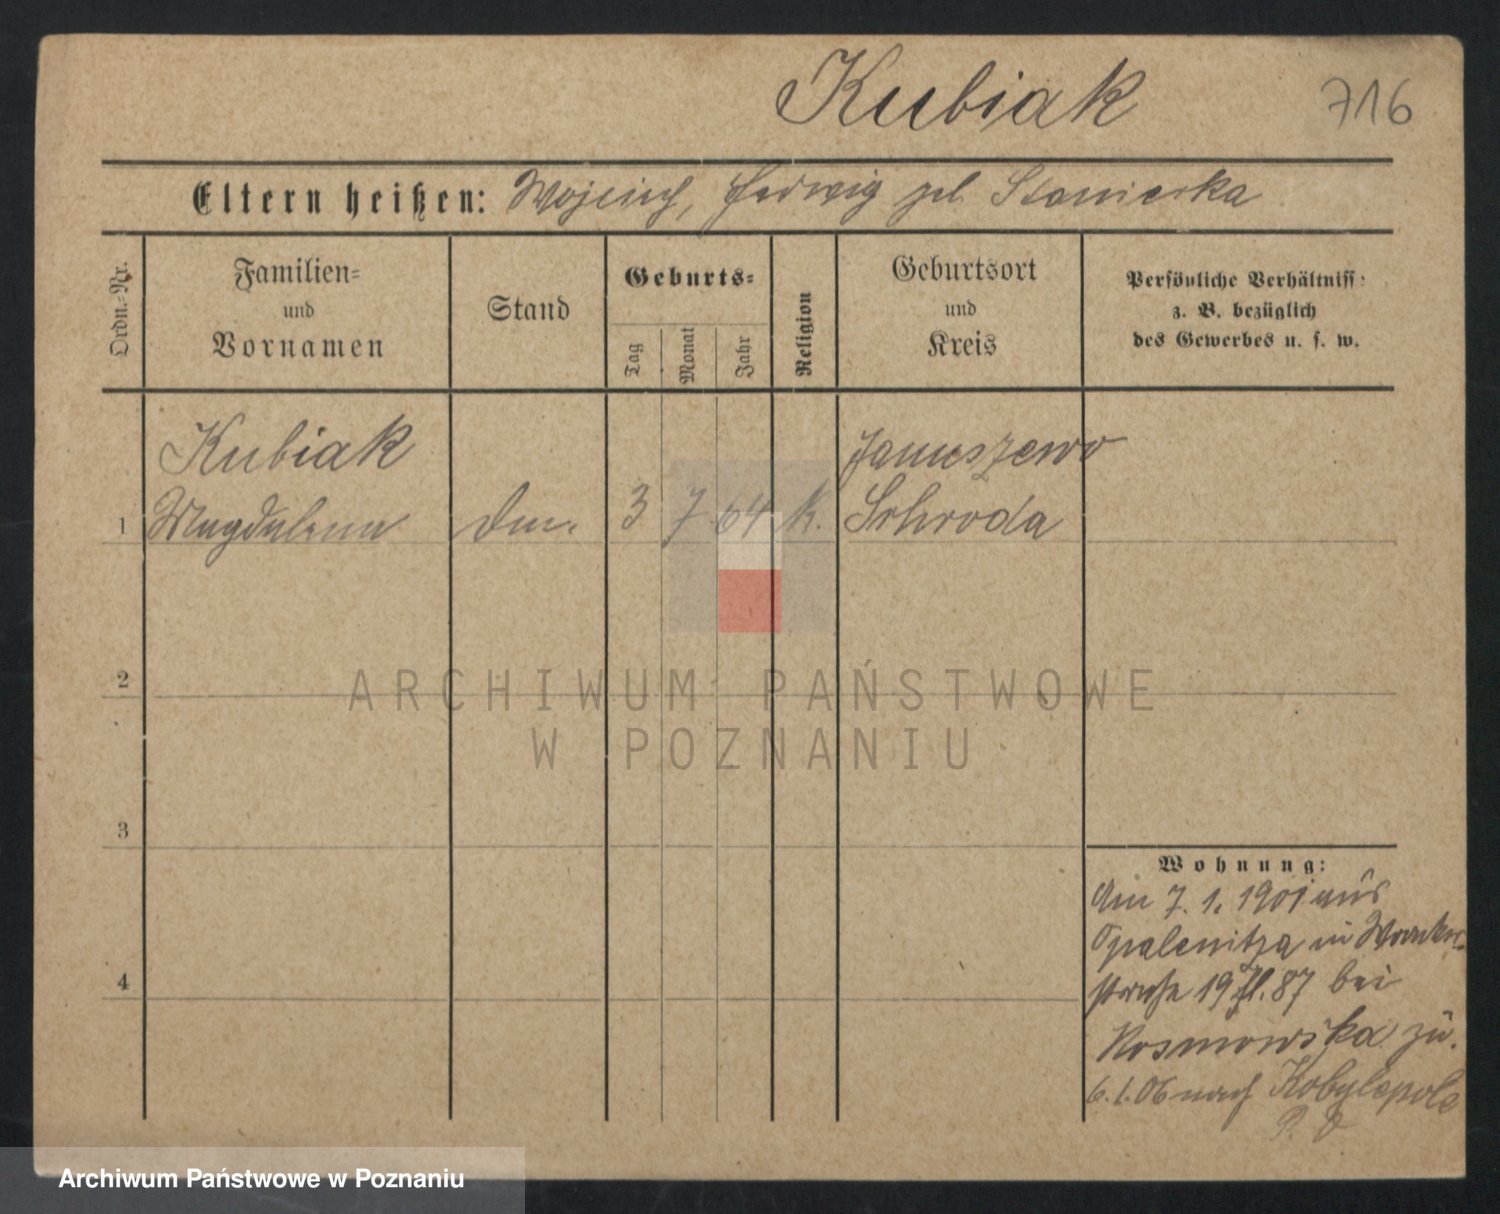 Kubiak 716
Eltern heißen: Wojciech, Hedwig geb. Stanierka
Ordn.-Nr.
Familien-
und
Vornamen
Stand
Geburts-
Tag
Monat
Jahr
Religion
Geburtsort
und
Kreis
Persönliche Verhältniss:
z. B. bezüglich
des Gewerbes u. s. w.
Kubiak Januszewo
1 Magdalena 3 7 64 k. Schroda
2
3
4
Wohnung:
Am 7. 1. 1901 aus
Opalenitza in
straße 19 87 bei
Kosmowska zu.
6. 1. 06 nach Kobylepole
ARCHIWUM PAŃSTWOWE
W POZNANIU
Archiwum Państwowe w Poznaniu